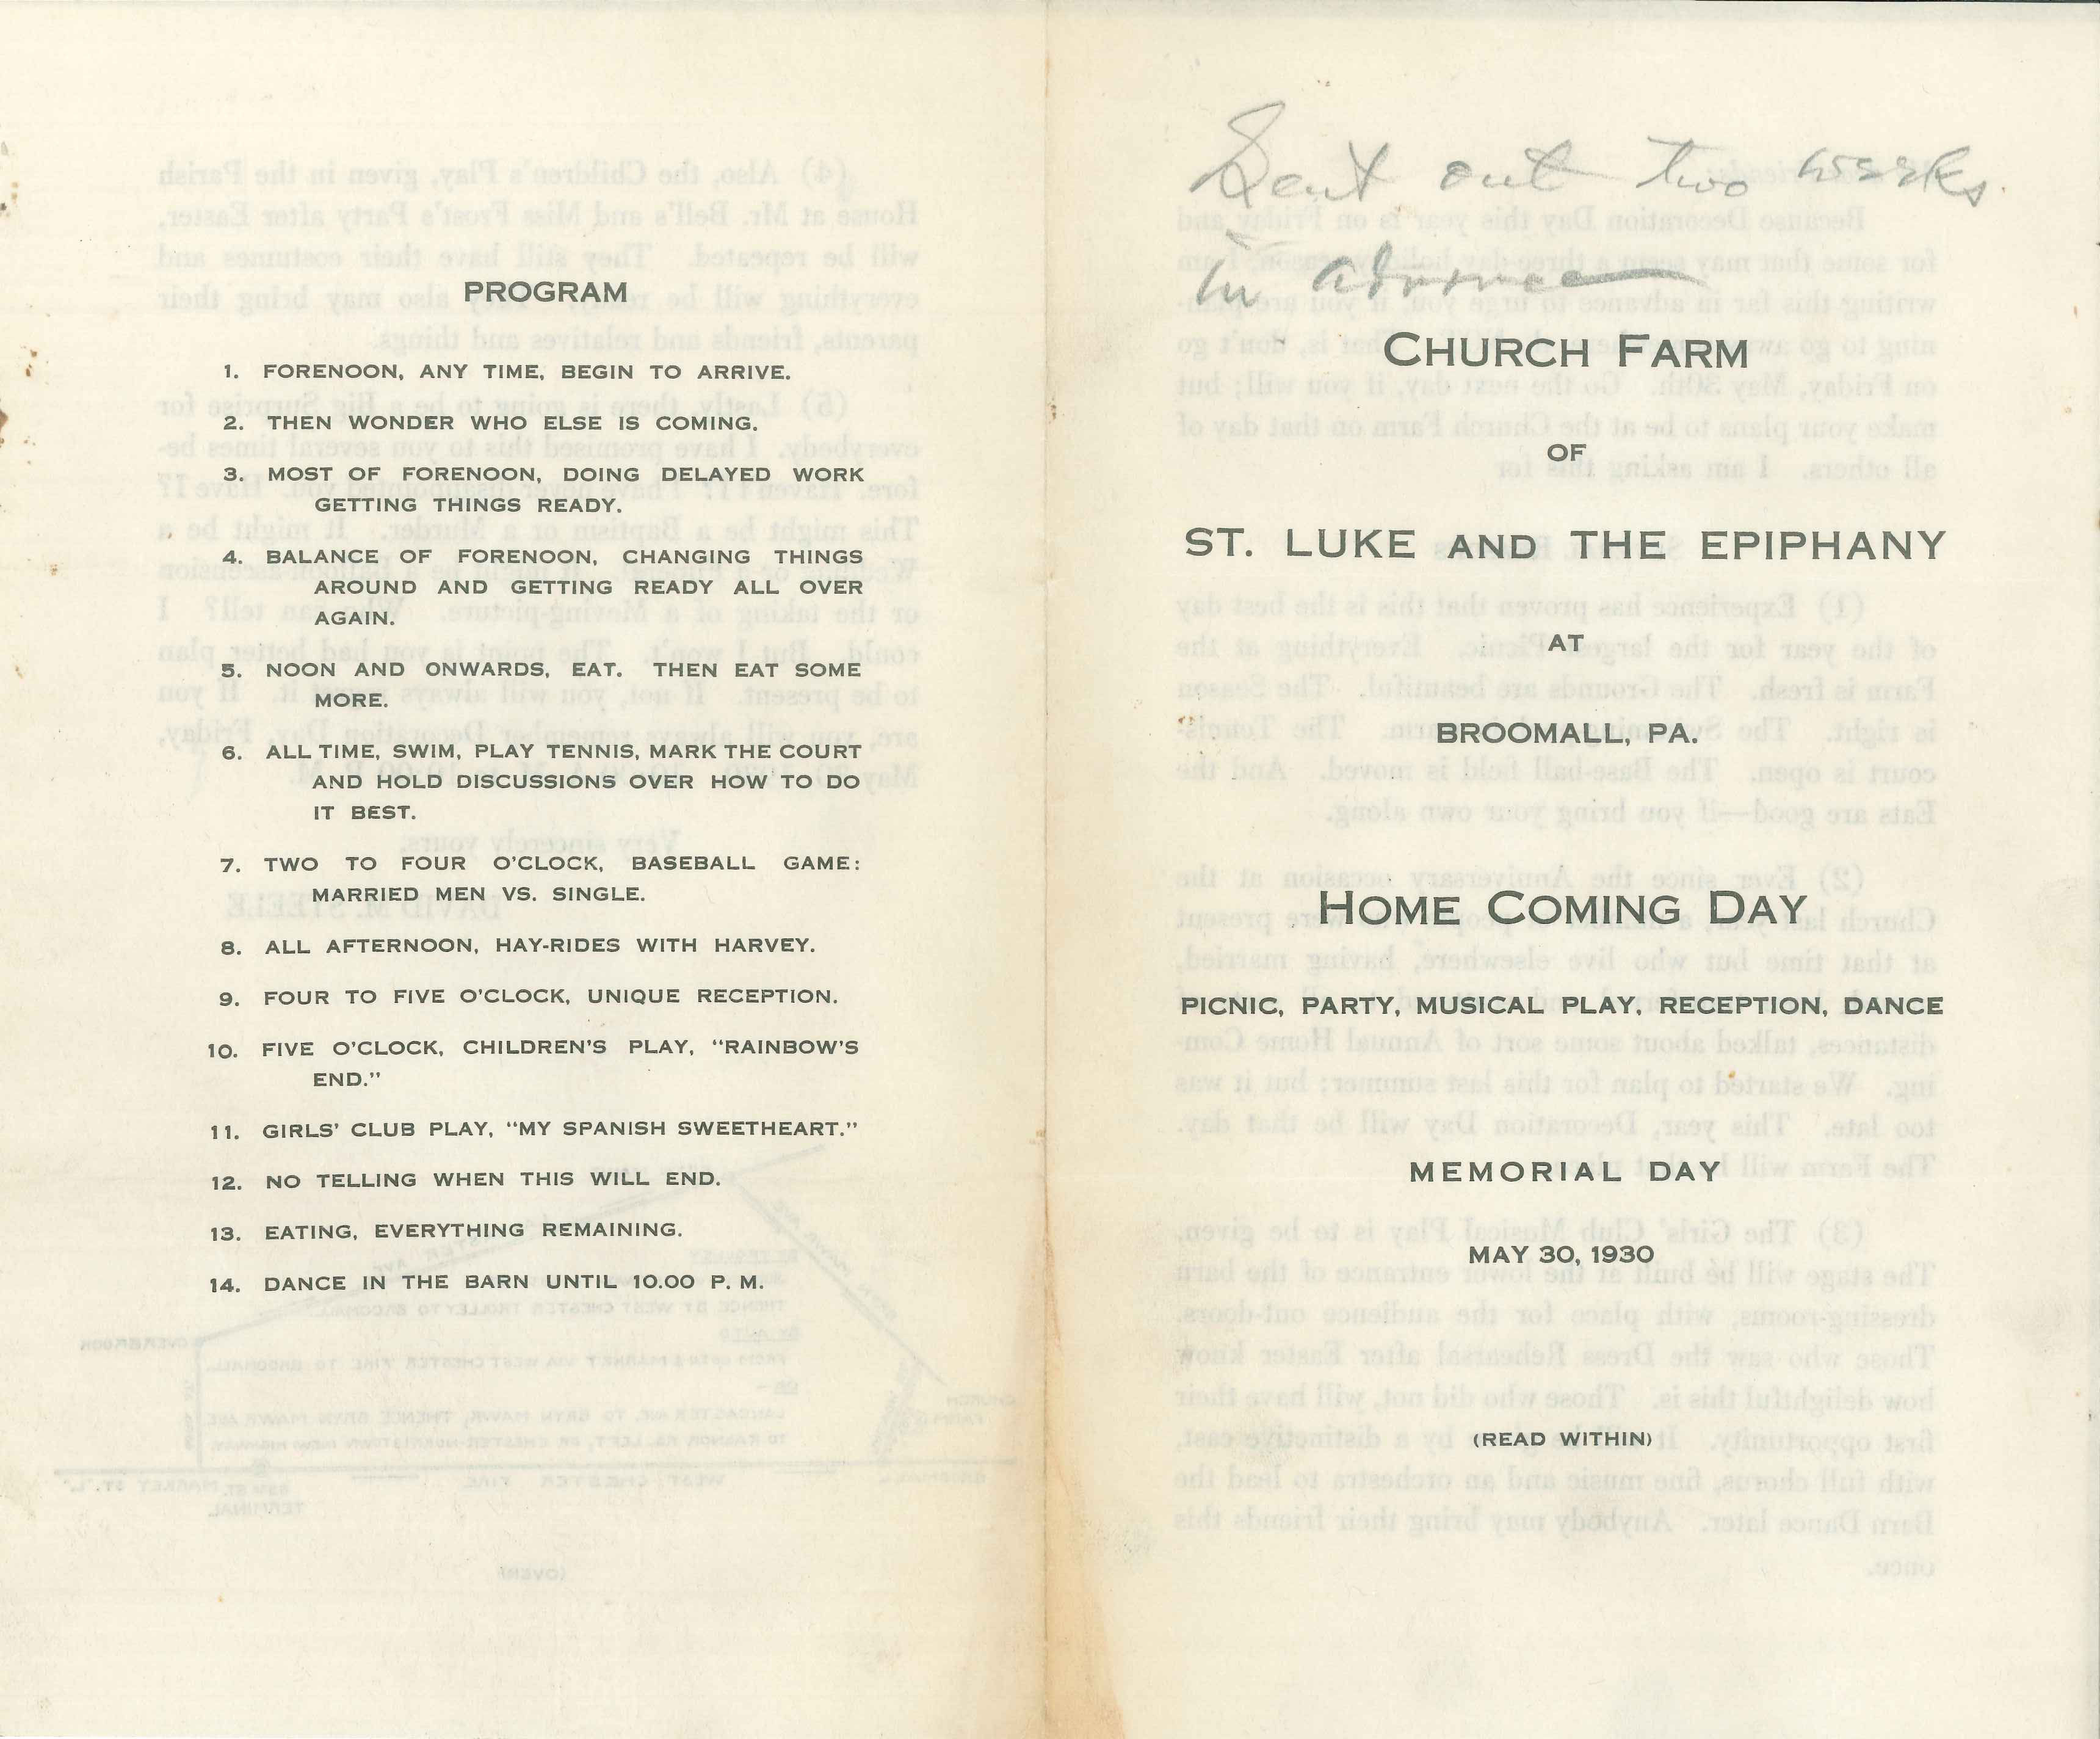 PROGRAM
1. FORENOON, ANY TIME, BEGIN TO ARRIVE.
2. THEN WONDER WHO ELSE IS COMING.
3. MOST OF FORENOON, DOING DELAYED WORK
GETTING THINGS READY.
4. BALANCE OF FORENOON, CHANGING THINGS
AROUND AND GETTING READY ALL OVER
AGAIN.
5. NOON AND ONWARDS, EAT. THEN EAT SOME
MORE.
6. ALL TIME, SWIM, PLAY TENNIS, MARK THE COURT
AND HOLD DISCUSSIONS OVER HOW TO DO
IT BEST.
7. TWO TO FOUR O'CLOCK, BASEBALL GAME:
MARRIED MEN VS. SINGLE.
8. ALL AFTERNOON, HAY-RIDES WITH HARVEY.
9. FOUR TO FIVE O'CLOCK, UNIQUE RECEPTION.
10. FIVE O'CLOCK, CHILDREN'S PLAY, "RAINBOW'S
END."
11. GIRLS' CLUB PLAY, "MY SPANISH SWEETHEART."
12. NO TELLING WHEN THIS WILL END.
13. EATING, EVERYTHING REMAINING.
14. DANCE IN THE BARN UNTIL 10.00 P. M.
Sent out two weeks
in advance
CHURCH FARM
OF
ST. LUKE AND THE EPIPHANY
AT
BROOMALL, PA.
HOME COMING DAY
PICNIC, PARTY, MUSICAL PLAY, RECEPTION, DANCE
MEMORIAL DAY
MAY 30, 1930
(READ WITHIN)